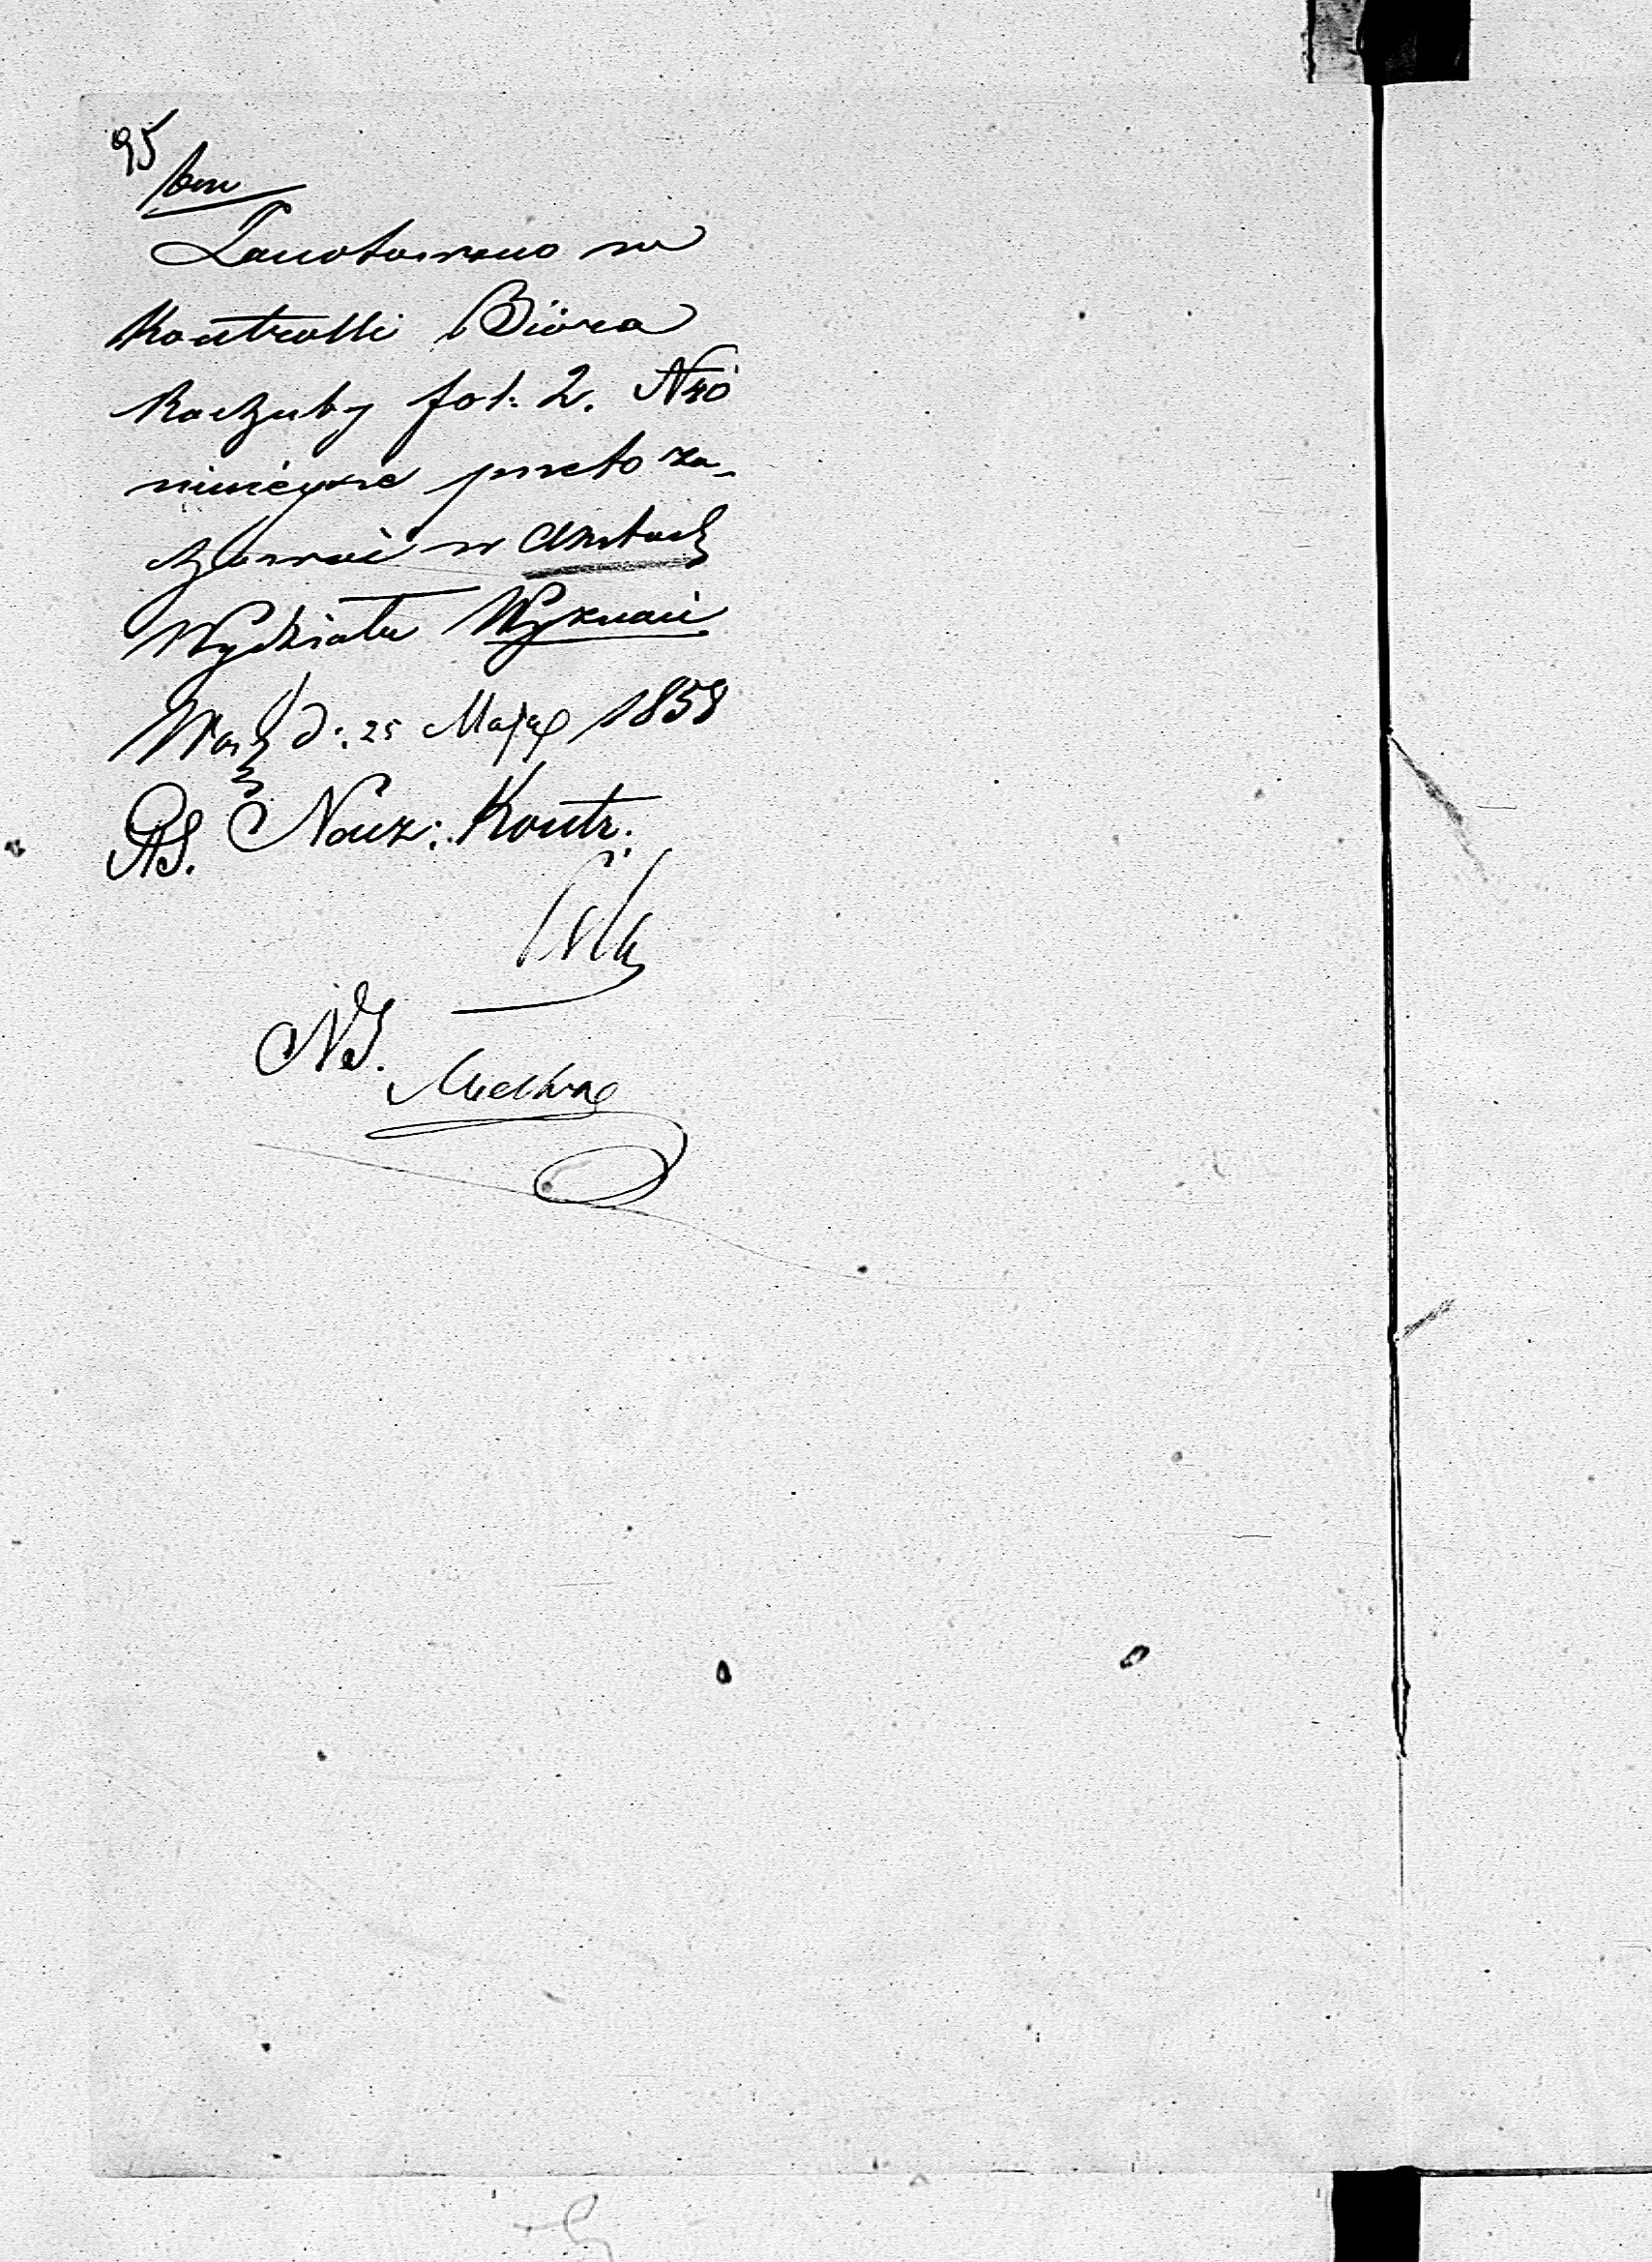 95
Zanotowano w
Kontrolli Bióra
Rachuby fol: 2. N 40
niniejsze przeto za-
chować w Aktach
Wydziału Wyznań
Warsz d: 25 Maja 1858
AS. Nacz: Kontr.
NS.